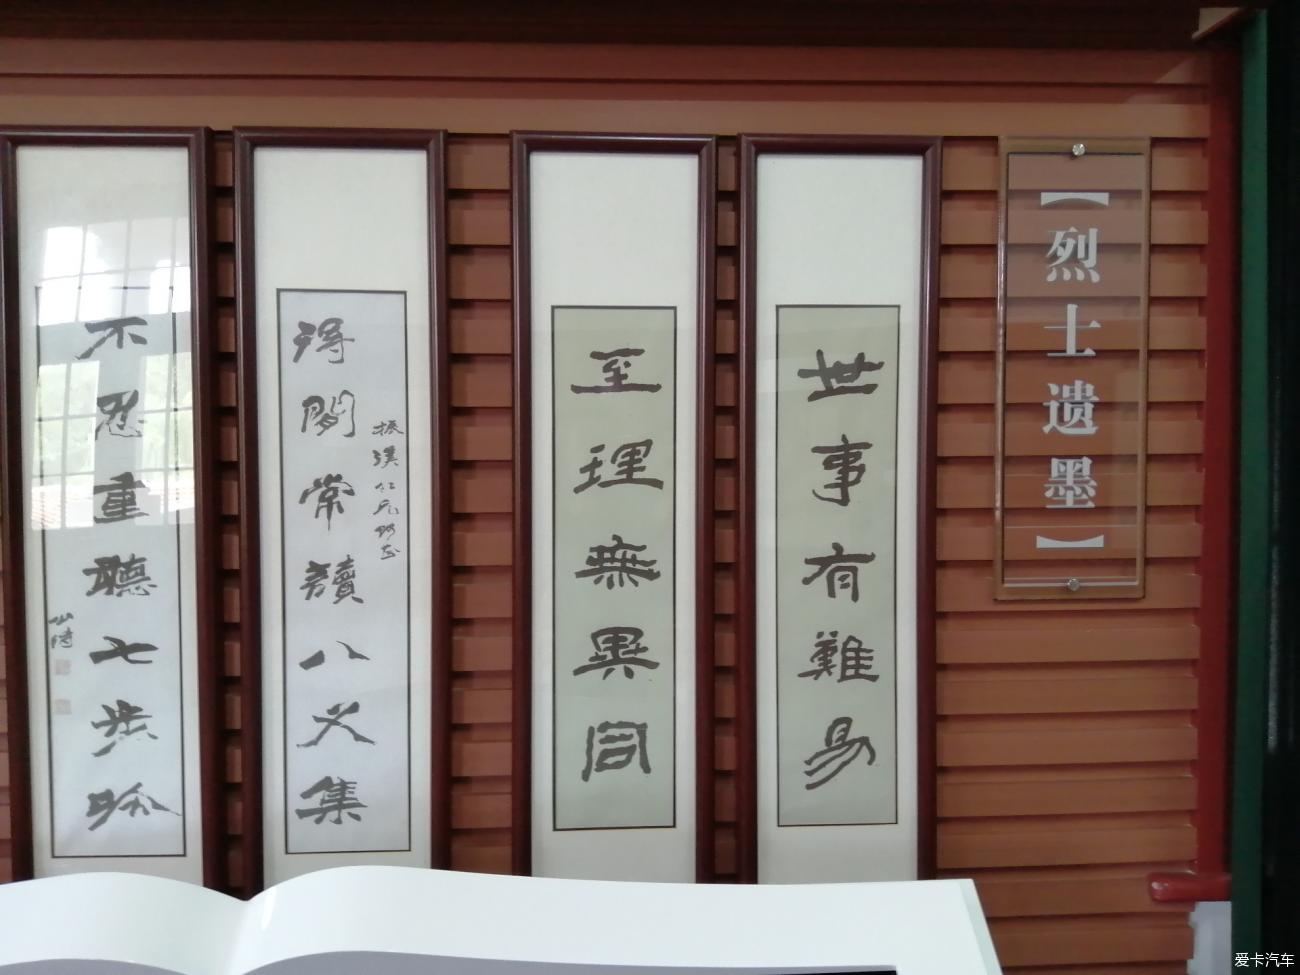 【烈士遗墨】
世事有難易
至理無異同
得閒常讀八叉集
不忍重聽七步吟
爱卡汽车